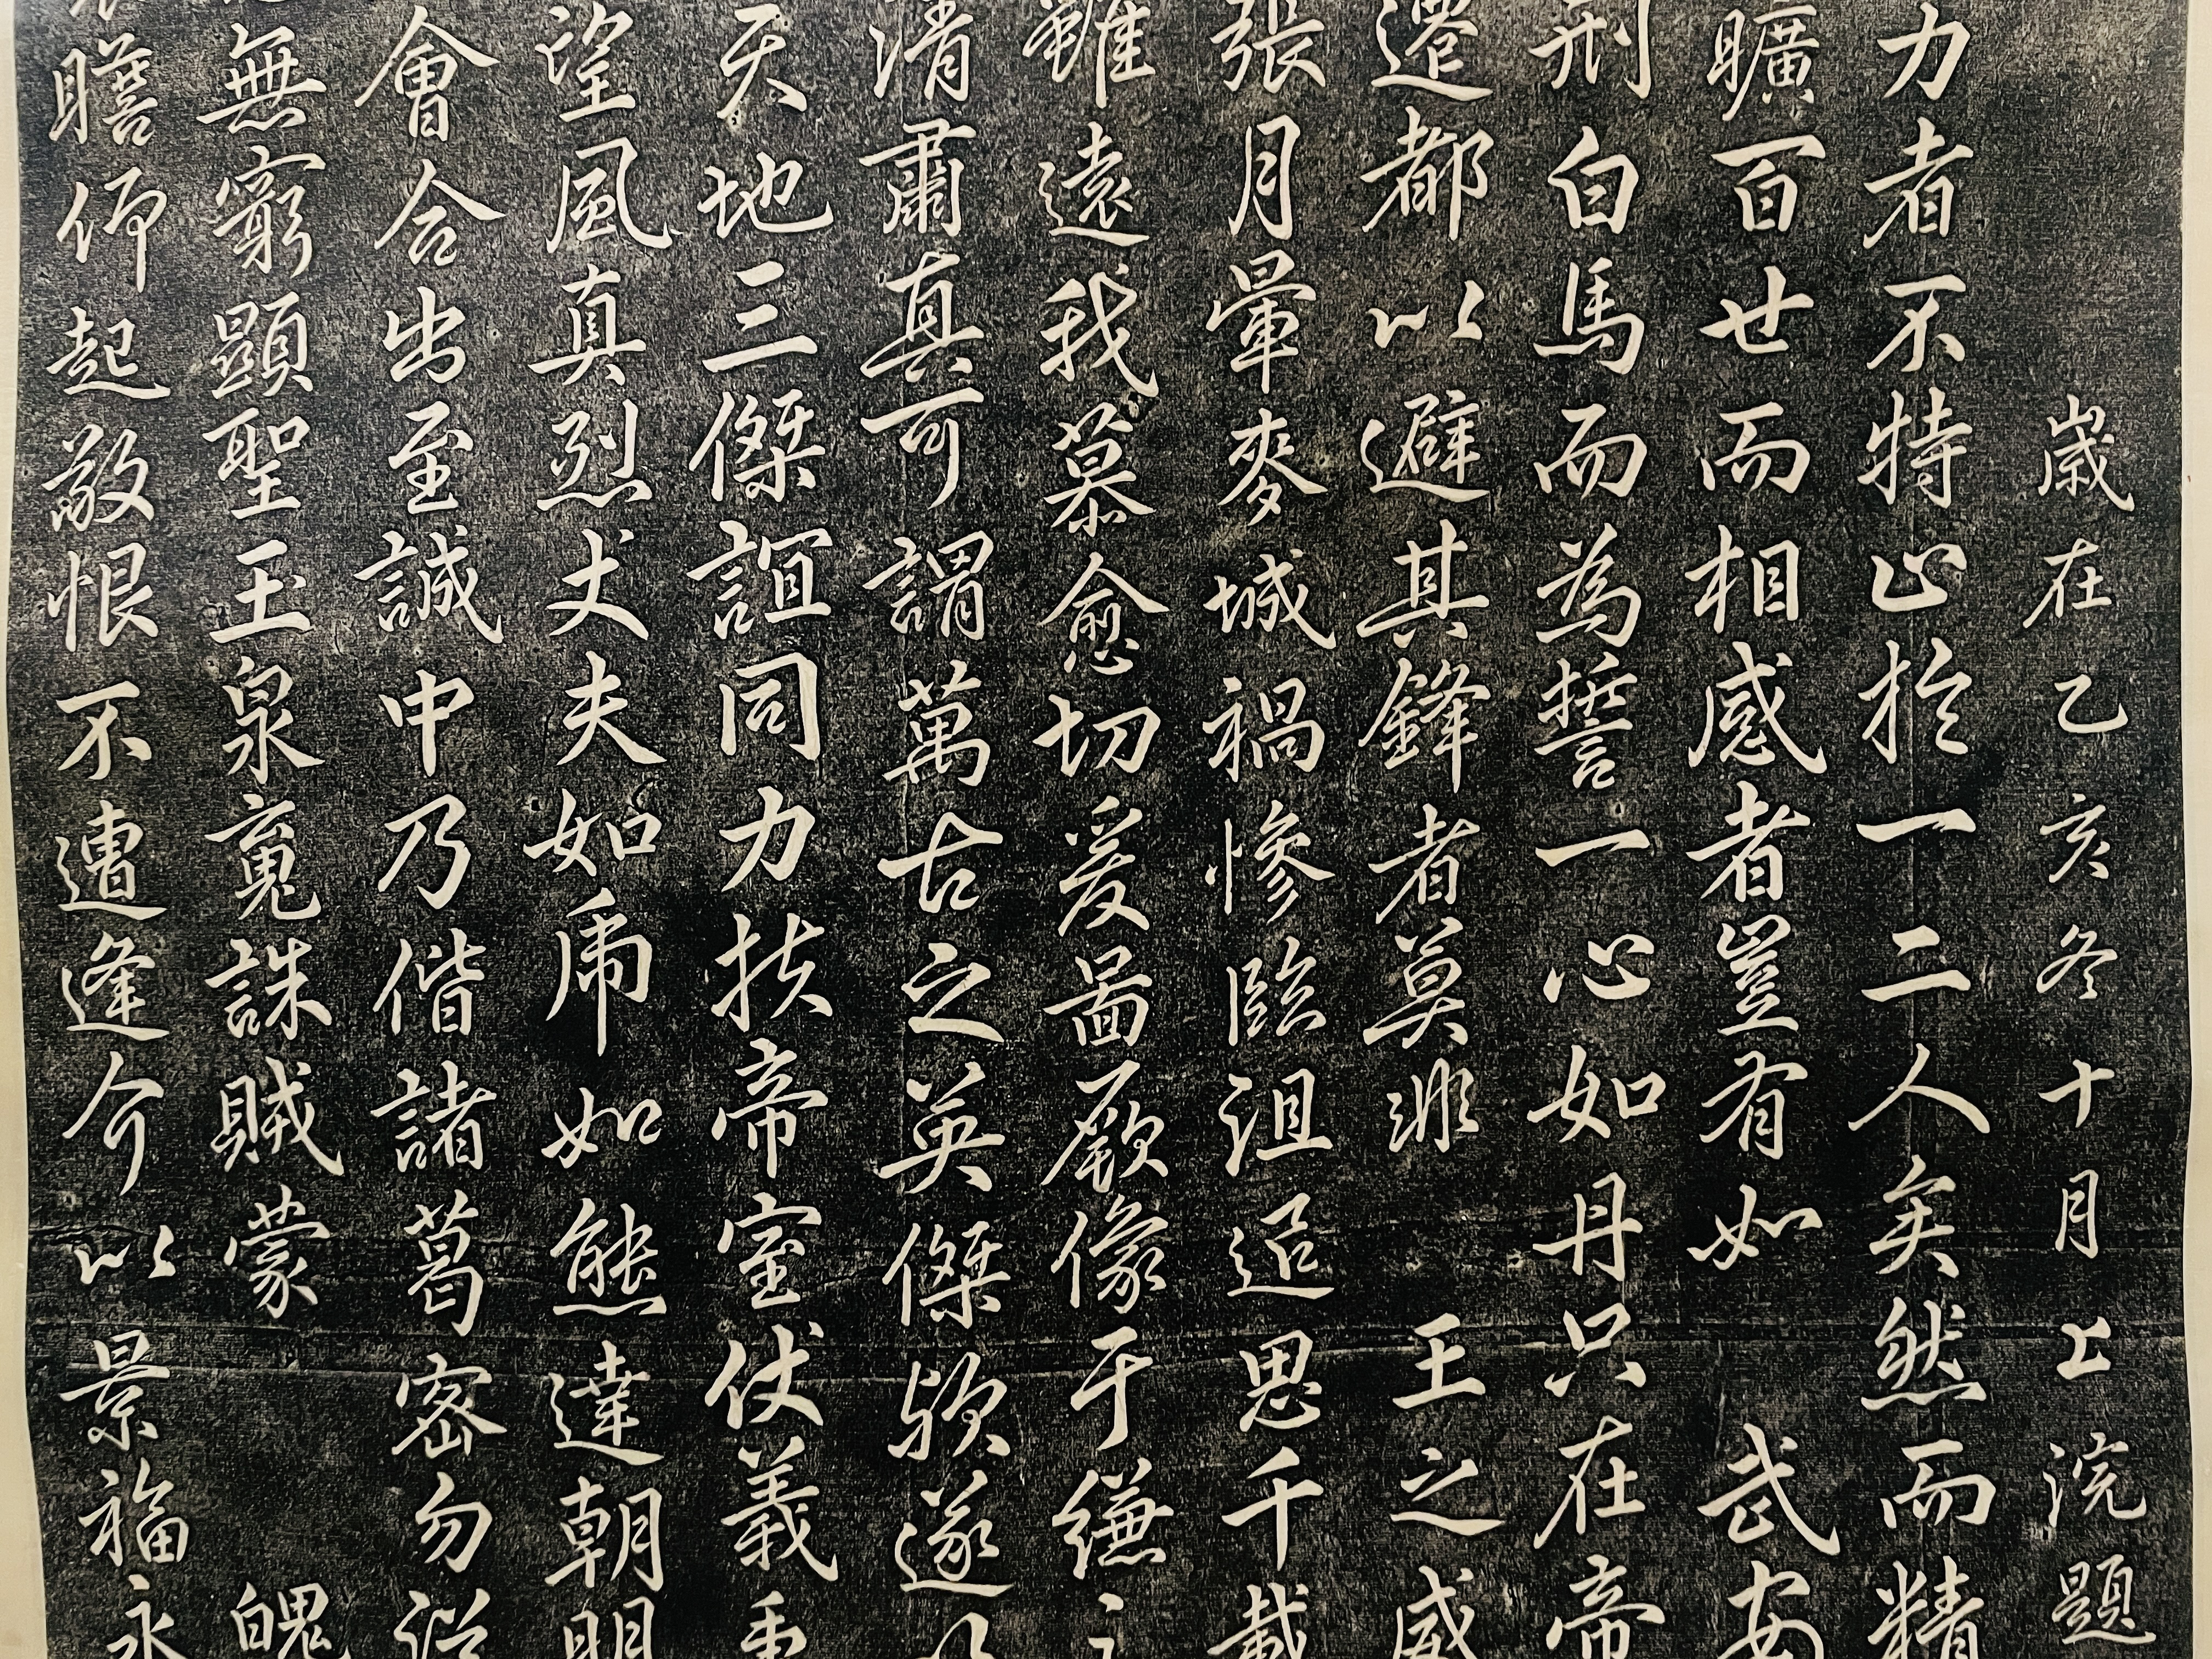 歲在乙亥冬十月上浣題
力者不特止於一二人矣然而精
曠百世而相感者豈有如武安
刑白馬而為誓一心如丹只在帝
遷都以避其鋒者莫非王之威
張月暈麥城禍慘臨沮追思千載
雖遠我慕愈切爰圖厥像于縑
清肅真可謂萬古之英傑歟遂
天地三傑誼同力扶帝室仗義秉
望風真烈丈夫如虎如熊達朝明
會合出至誠中乃偕諸葛密勿從
無窮顯聖玉泉寃誅賊蒙魄
瞻仰起敬恨不遭逢介以景福永